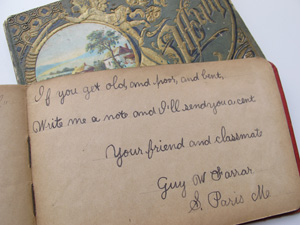 If you get old, and poor, and bent,
Write me a note and I'll send you a cent
Your friend and classmate
Guy W Farrar
S. Paris Me